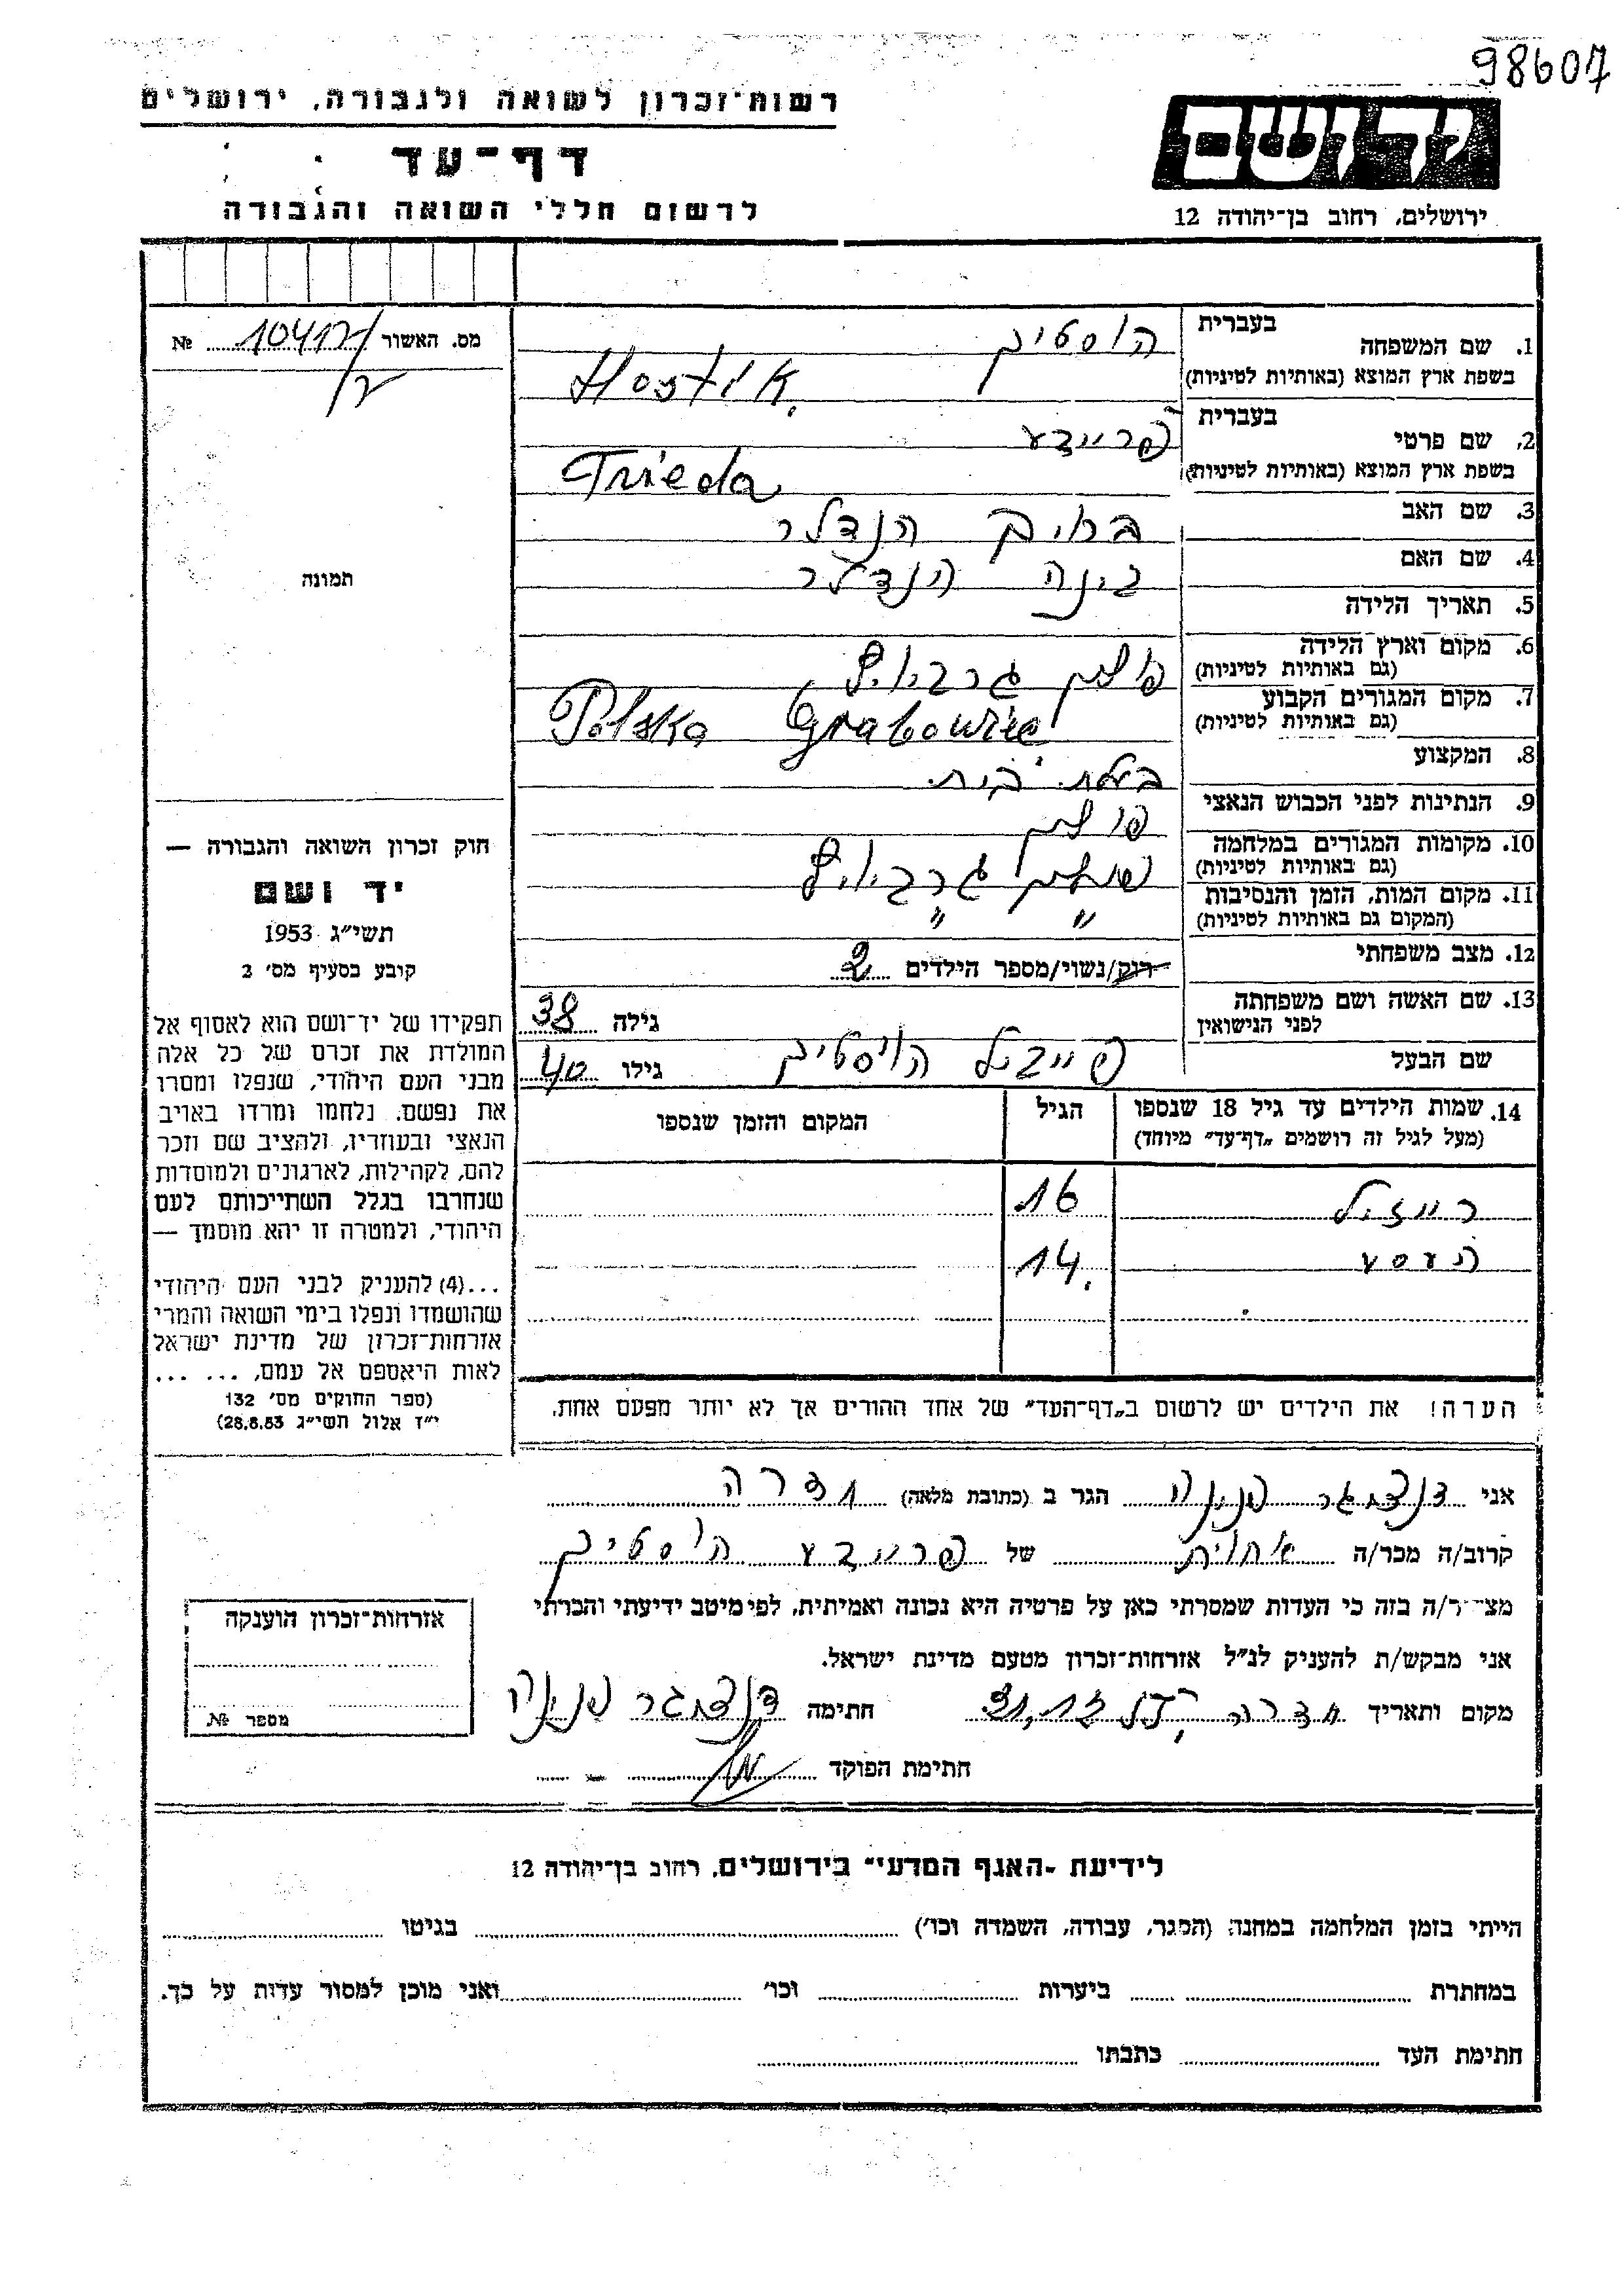 98607
רשות־זכרון לשואה ולגבורה, ירושלים
דף־עד
לרשום חללי השואה והגבורה
יד ושם
ירושלים, רחוב בן־יהודה 12
מס. האשור № 10417
1. שם המשפחה בעברית הוסטיק
בשפת ארץ המוצא (באותיות לטיניות) Hostik.
2. שם פרטי בעברית פריידע
בשפת ארץ המוצא (באותיות לטיניות) Frieda
3. שם האב ברוך הנדלר
4. שם האם בינה הנדלר
5. תאריך הלידה
6. מקום וארץ הלידה (גם באותיות לטיניות) פולין גרבוביץ
7. מקום המגורים הקבוע (גם באותיות לטיניות) Polska Grabowiec
8. המקצוע בעלת בית.
9. הנתינות לפני הכבוש הנאצי פולין
10. מקומות המגורים במלחמה (גם באותיות לטיניות) פולין גרבוביץ
11. מקום המות, הזמן והנסיבות (המקום גם באותיות לטיניות) " "
12. מצב משפחתי רווק/נשוי/מספר הילדים 2
13. שם האשה ושם משפחתה לפני הנישואין גילה 38
שם הבעל פייבל הוסטיק גילו 40
תמונה
חוק זכרון השואה והגבורה —
יד ושם
תשי״ג 1953
קובע בסעיף מס׳ 2
תפקידו של יד־ושם הוא לאסוף אל
המולדת את זכרם של כל אלה
מבני העם היהודי, שנפלו ומסרו
את נפשם, נלחמו ומרדו באויב
הנאצי ובעוזריו, ולהציב שם וזכר
להם, לקהילות, לארגונים ולמוסדות
שנחרבו בגלל השתייכותם לעם
היהודי, ולמטרה זו יהא מוסמך —
...(4) להעניק לבני העם היהודי
שהושמדו ונפלו בימי השואה והמרי
אזרחות־זכרון של מדינת ישראל
לאות היאספם אל עמם, ... ...
(ספר החוקים מס׳ 132
י״ז אלול תשי״ג 28.8.53)
14. שמות הילדים עד גיל 18 שנספו הגיל המקום והזמן שנספו
(מעל לגיל זה רושמים „דף־עד״ מיוחד)
רייזל 16
הערה! את הילדים יש לרשום ב„דף־העד״ של אחד ההורים אך לא יותר מפעם אחת.
אני דנציגר פנינה הגר ב (כתובת מלאה) חדרה
קרוב/ה מכר/ה אחות של פריידע הוסטיק
מצהיר/ה בזה כי העדות שמסרתי כאן על פרטיה היא נכונה ואמיתית, לפי מיטב ידיעתי והכרתי
אני מבקש/ת להעניק לנ״ל אזרחות־זכרון מטעם מדינת ישראל.
מקום ותאריך חדרה חתימה דנציגר פנינה
חתימת הפוקד
אזרחות־זכרון הוענקה
מספר №
לידיעת „האגף המדעי״ בירושלים, רחוב בן־יהודה 12
הייתי בזמן המלחמה במחנה (הסגר, עבודה, השמדה וכו׳) בגיטו
במחתרת ביערות וכו׳ ואני מוכן למסור עדות על כך.
חתימת העד כתבתו